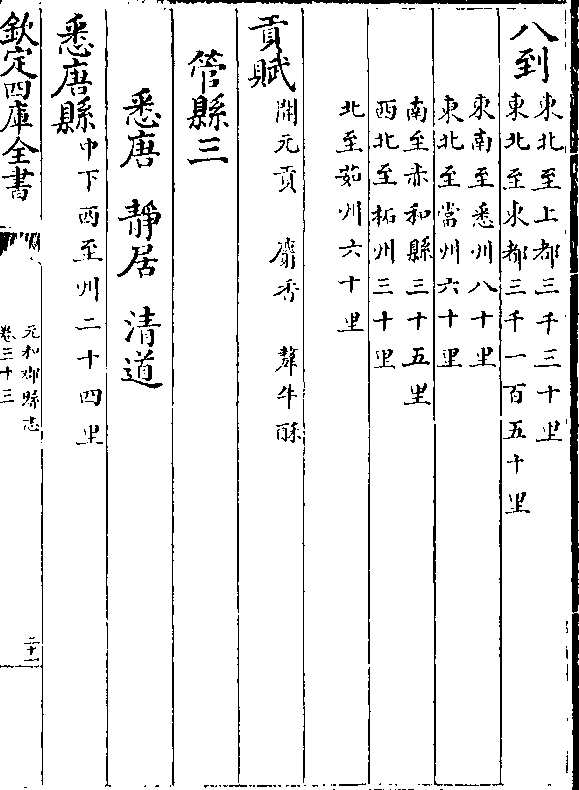 八到
東北至上都三千三十里
東北至東都三千一百五十里
東南至悉州八十里
東北至當州六十里
南至赤和縣三十五里
西北至柘州三十里
北至茹州六十里
貢賦
開元貢 麝香 犛牛酥
管縣三
悉唐 靜居 清道
悉唐縣
中下西至州二十四里
欽定四庫全書
元和郡縣志
卷三十三
二十一